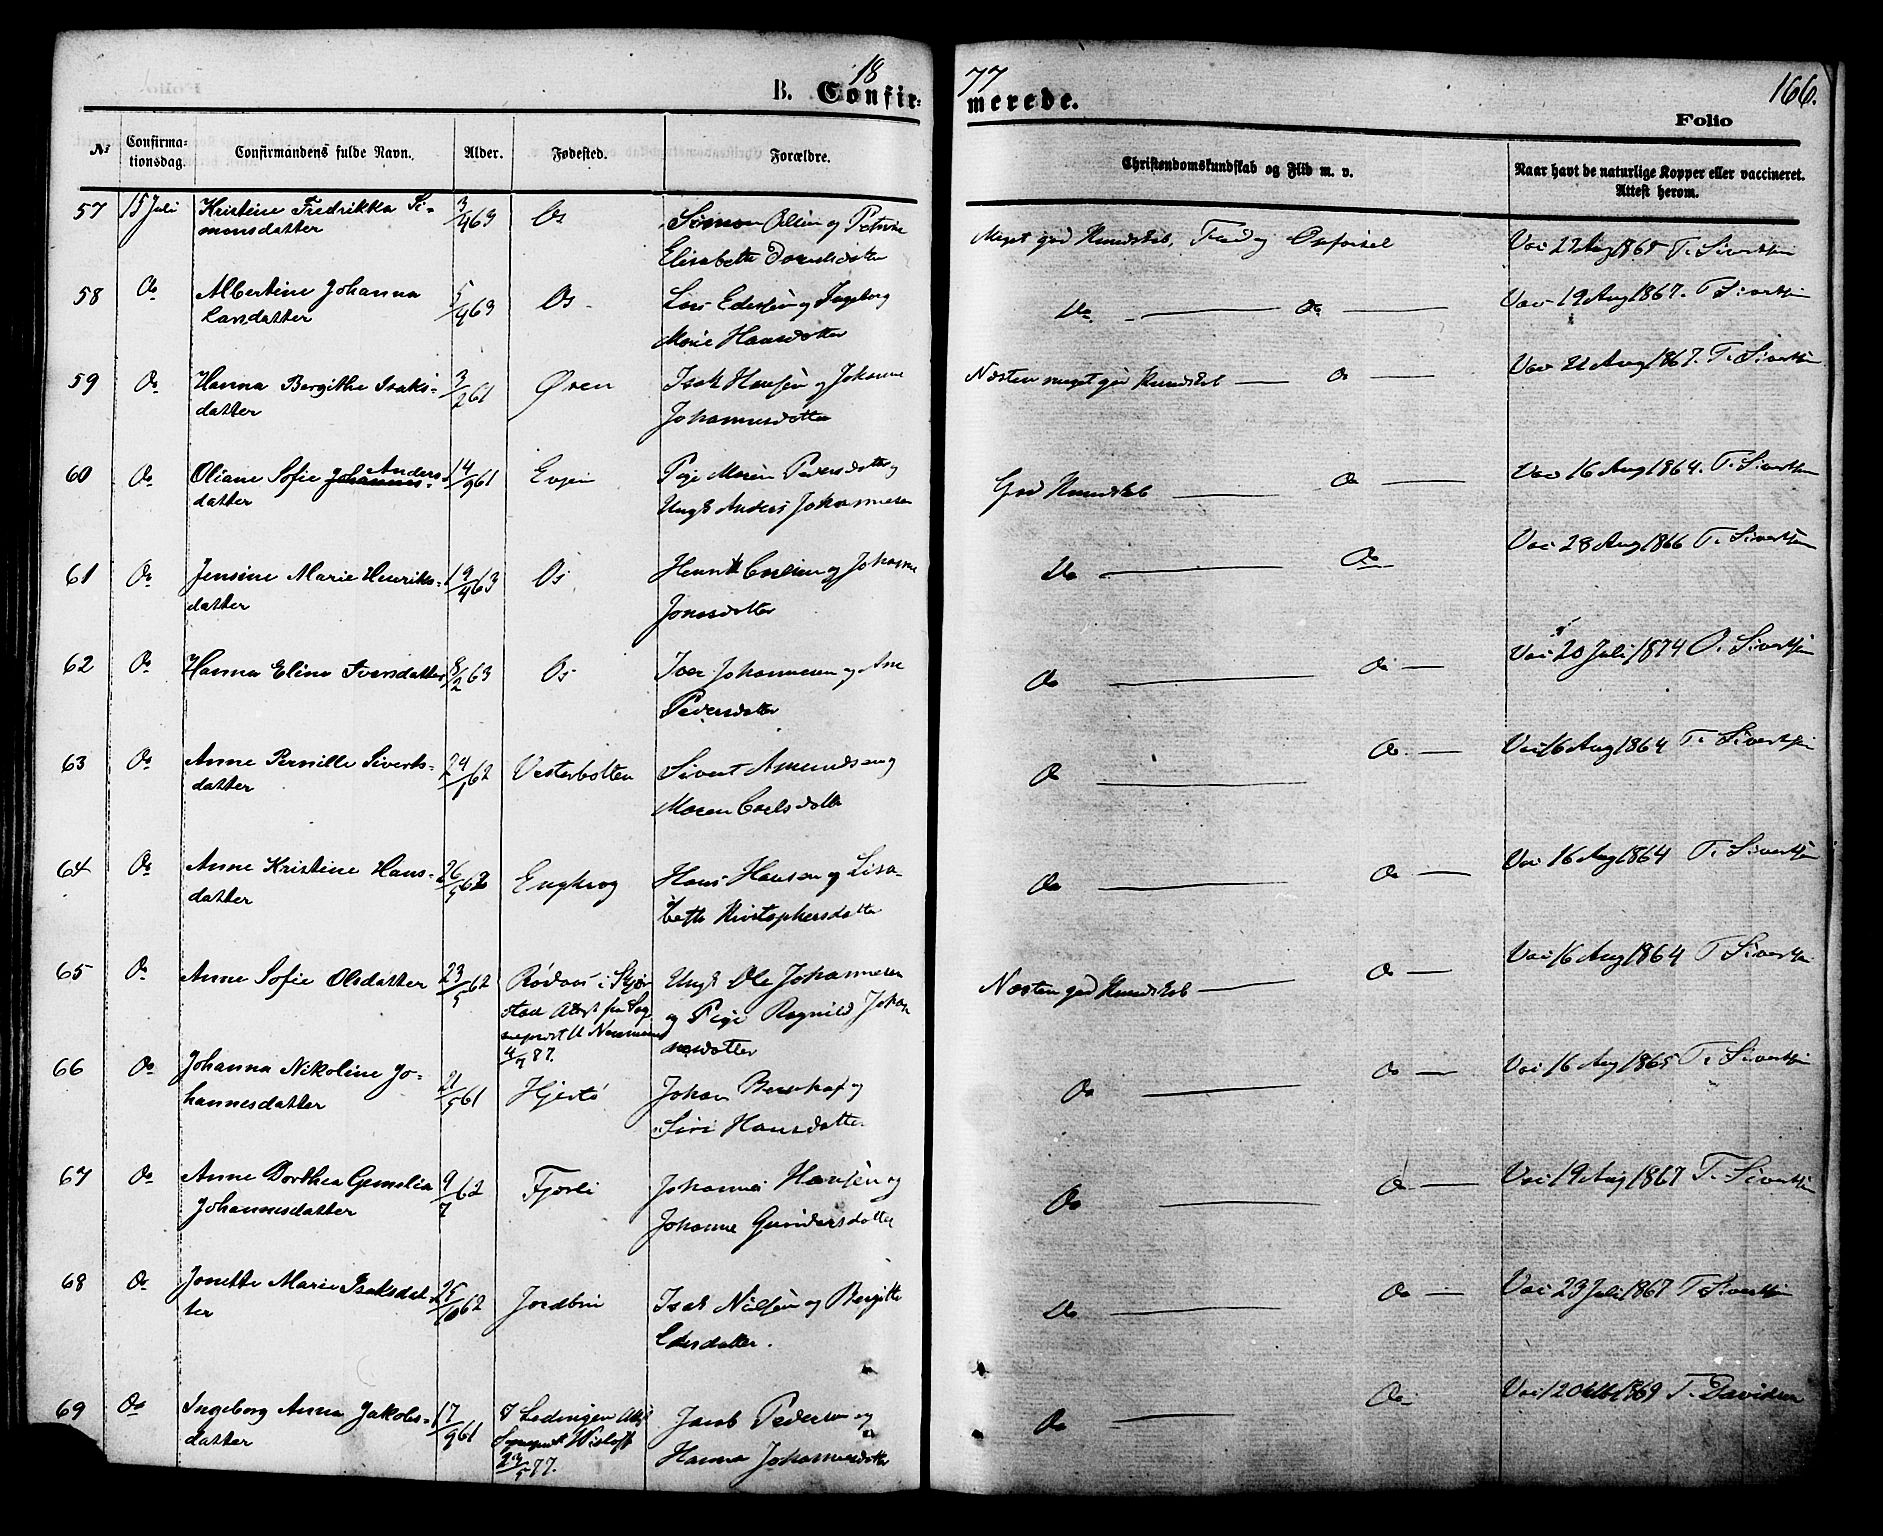 18 77 166.
B. Confir- merede.
Folio
No
Confirma-
tionsdag.
Confirmandens fulde Navn.
Alder.
Fødested.
Forældre.
Christendomskundskab og Flid m. v.
Naar havt de naturlige Kopper eller vaccineret.
Attest herom.
57 15 Juli Kristine Fredrikka Si- 3/4 63 Os Simon Olsen og Petrine Meget god Kundskab, Flid og Opførsel Vac 22 Aug 1865 T. Sivertsen
monsdatter Elisabeth
58 Do Albertine Johanna 5/4 63 Os Lars Edessen og Ingeborg Do Do Vac 19 Aug 1867. T Sivertsen
Larsdatter Marie Hansdatter
59 Do Hanna Bergithe Isaks- 3/2 61 Øren Isak Hansen og Johanna Næsten meget god Kundskab Do Vac 21 Aug 1867. T. Sivertsen
datter Johannesdatter
60 Do Oliane Sofie Johannes- Anders 14/9 61 Evjen Pige Maren Pedersdatter og God Kundskab Do Vac 16 Aug 1864. T. Sivertsen
datter Ungk Anders Johannesen
61 Do Jensine Marie Henriks- 19/4 63 Os Henrik og Johanna Do Do Vac 28 Aug 1866 T. Sivertsen
datter Jonasdatter
62 Do Hanna Elina Iversdatter 8/2 63 Os Iver Johannesen og Ane Do Do Vac 20 Juli 1874 O. Sivertsen
Pedersdatter
63 Do Anne Pernille Siverts- 24/1 62 Vesterbotten Sivert Amundsen og Do Do Vac 16 Aug 1864 T. Sivertsen
datter Maren Carlsdatter
64 Do Anne Kristine Hans- 26/5 62 Engkrog Hans Hansen og Lisa- Do Do Vac 16 Aug 1864 T. Sivertsen
datter beth Kristophersdatter
65 Do Anne Sofie Olsdatter 23/5 62 Rødaas i Skjer- Ungk Ole Johannesen Næsten god Kundskab Do Vac 16 Aug 1864 T Sivertsen
stad Attest fra Sog- og Pige Ragnild Johan
neprest nesdatter
4/7 87.
66 Do Johanna Nikoline Jo- 21/5 61 Hjertø Johan og Do Do Vac 16 Aug 1865 T. Sivertsen
hannesdatter Siri Hansdatter
67 Do Anne Dorthea Gemelia 9/7 62 Fjærli Johannes Hansen og Do Do Vac 19 Aug 1867 T. Sivertsen
Johannesdatter Johanne Gundersdatter
68 Do Jonette Marie Isaksdat- 25/10 62 Jordbru Isak Nilsen og Bergitte Do Do Vac 23 Juli 1867 T Sivertsen
ter Edesdatter.
69 Do Ingeborg Anna Jakobs- 17/9 61 I Lødingen Att Jacob Pedersen og Do Do Vac 12 Okt 1869 T. Davidsen
datter Sogneprest Wisløff Hanna Johannesdatter
77.